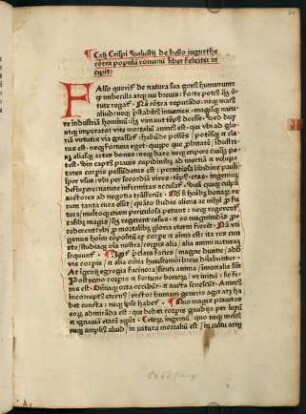 Caij Crispi Salustij de bello iugurthe
cōtra populū romanū liber feliciter in
cipit.
Falso queriť de natura sua genꝰ humanum
ꝙ imbecillis atqꝫ eui breuis: forte potiꝰ ꝙ uir
tute regať. Nā cōtra reputādo: neqꝫ maiꝰ
aliud: neqꝫ p̄stabiliꝰ inuenies. Magisqꝫ natu
re industriā hominū ꝙ uim aut tēpꝰ deesse. Sed dux
atqꝫ imperator uite mortaliū animꝰ est: qui ubi ad glo
riā uirtutis uia grassať: habūde pollēs: potēsqꝫ et cla
rus est: neqꝫ fortuna eget: quippe que probitatē: idustriā
aliasqꝫ artes bonas: neqꝫ dare neqꝫ eripere cuiqꝫ potest.
Sin captꝰ prauis cupidinibꝰ ad inertiā et volupta
tes corporis pessūdatus est: perniciosa libidine paulis
per usus: ubi per socordiā uires: tēpꝰ: etas: ingeniū
defluxere nature infirmitas accusať. Suā quiqꝫ culpā
auctores ad negotia trāsferūt. Qd si hominibꝰ bona
rum tanta cura esset: quāto studio aliena ac nihil ꝓfu
tura/ multoqꝫ etiam periculosa petunt: neqꝫ regerenť
magis: ꝙ regerent casus: et eo magnitudinis ꝓ
cederent/ubi ꝓ mortalibꝰ gloria eterni fierēt. Nā uti
genꝰ hoīm cōpositū ex corpore et aīa est: ita res cūcte
studiaqꝫ oīa nostra: corpis alia/ alia animi naturas
sequunť. Igiť p̄clara facies: magne diuitie/ ad hoc
uis corpis/ et alia oīa huiuscemodi breui dilabunť.
At īgenij egregia facinora: sicuti anima/ īmortalia sūt
Postremo corpis et fortune bonorū/ ut initiū/ sic finis
est. Oīaqꝫ orta occidūt: et aucta senescūt. Animꝰ
incorruptꝰ eternꝰ/ rector humani generis agit atqꝫ ha
bet cuncta: neqꝫ ipse habeť. Quo magis prauitas
eorū admirāda est: qui dediti corpis gaudijs: per luxū
et ignauiā etatē agūt. Ceterū ingeniū quo neqꝫ meliꝰ
neqꝫ ampliꝰ aliud/ in natura mortaliū est/ in cultu atqꝫ